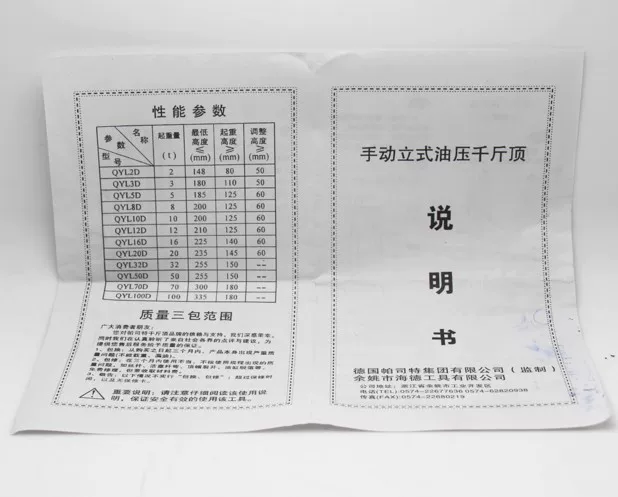 性能参数
名称 参数 型号 起重量(t) 最低高度≤(mm) 起重高度≥(mm) 调整高度≥(mm)
QYL2D 2 148 80 50
QYL3D 3 180 110 50
QYL5D 5 185 125 60
QYL8D 8 200 125 60
QYL10D 10 200 125 60
QYL12D 12 210 125 60
QYL16D 16 225 140 60
QYL20D 20 235 145 60
QYL32D 32 255 150 --
QYL50D 50 255 150 --
QYL70D 70 300 180 --
QYL100D 100 335 180 --
质量三包范围
广大消费者朋友:
重要说明:请注意仔细阅读该使用说
明,保证安全有效的使用该工具。
手动立式油压千斤顶
说
明
书
德国帕司特集团有限公司(监制)
余姚市海德工具有限公司
公司地址:浙江省余姚市工业开发区
电话(TEL):0574-22677636 0574-62820938
传真(FAX):0574-22680219